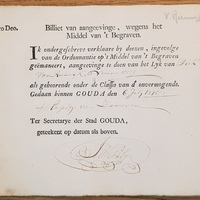 ro Deo.
Billiet van aangeevinge, wegens het
Middel van 't Begraven.
IK ondergeschreve verklaare by deesen, ingevolge
van de Ordonnantie op 't Middel van 't Begraven
geëmaneert, aangeevinge te doen van het Lyk van
als gehoorende onder de Classis van d' onvermogende.
Gedaan binnen GOUDA den 6 July
Ter Secretarye der Stad GOUDA,
geteekent op datum als boven.